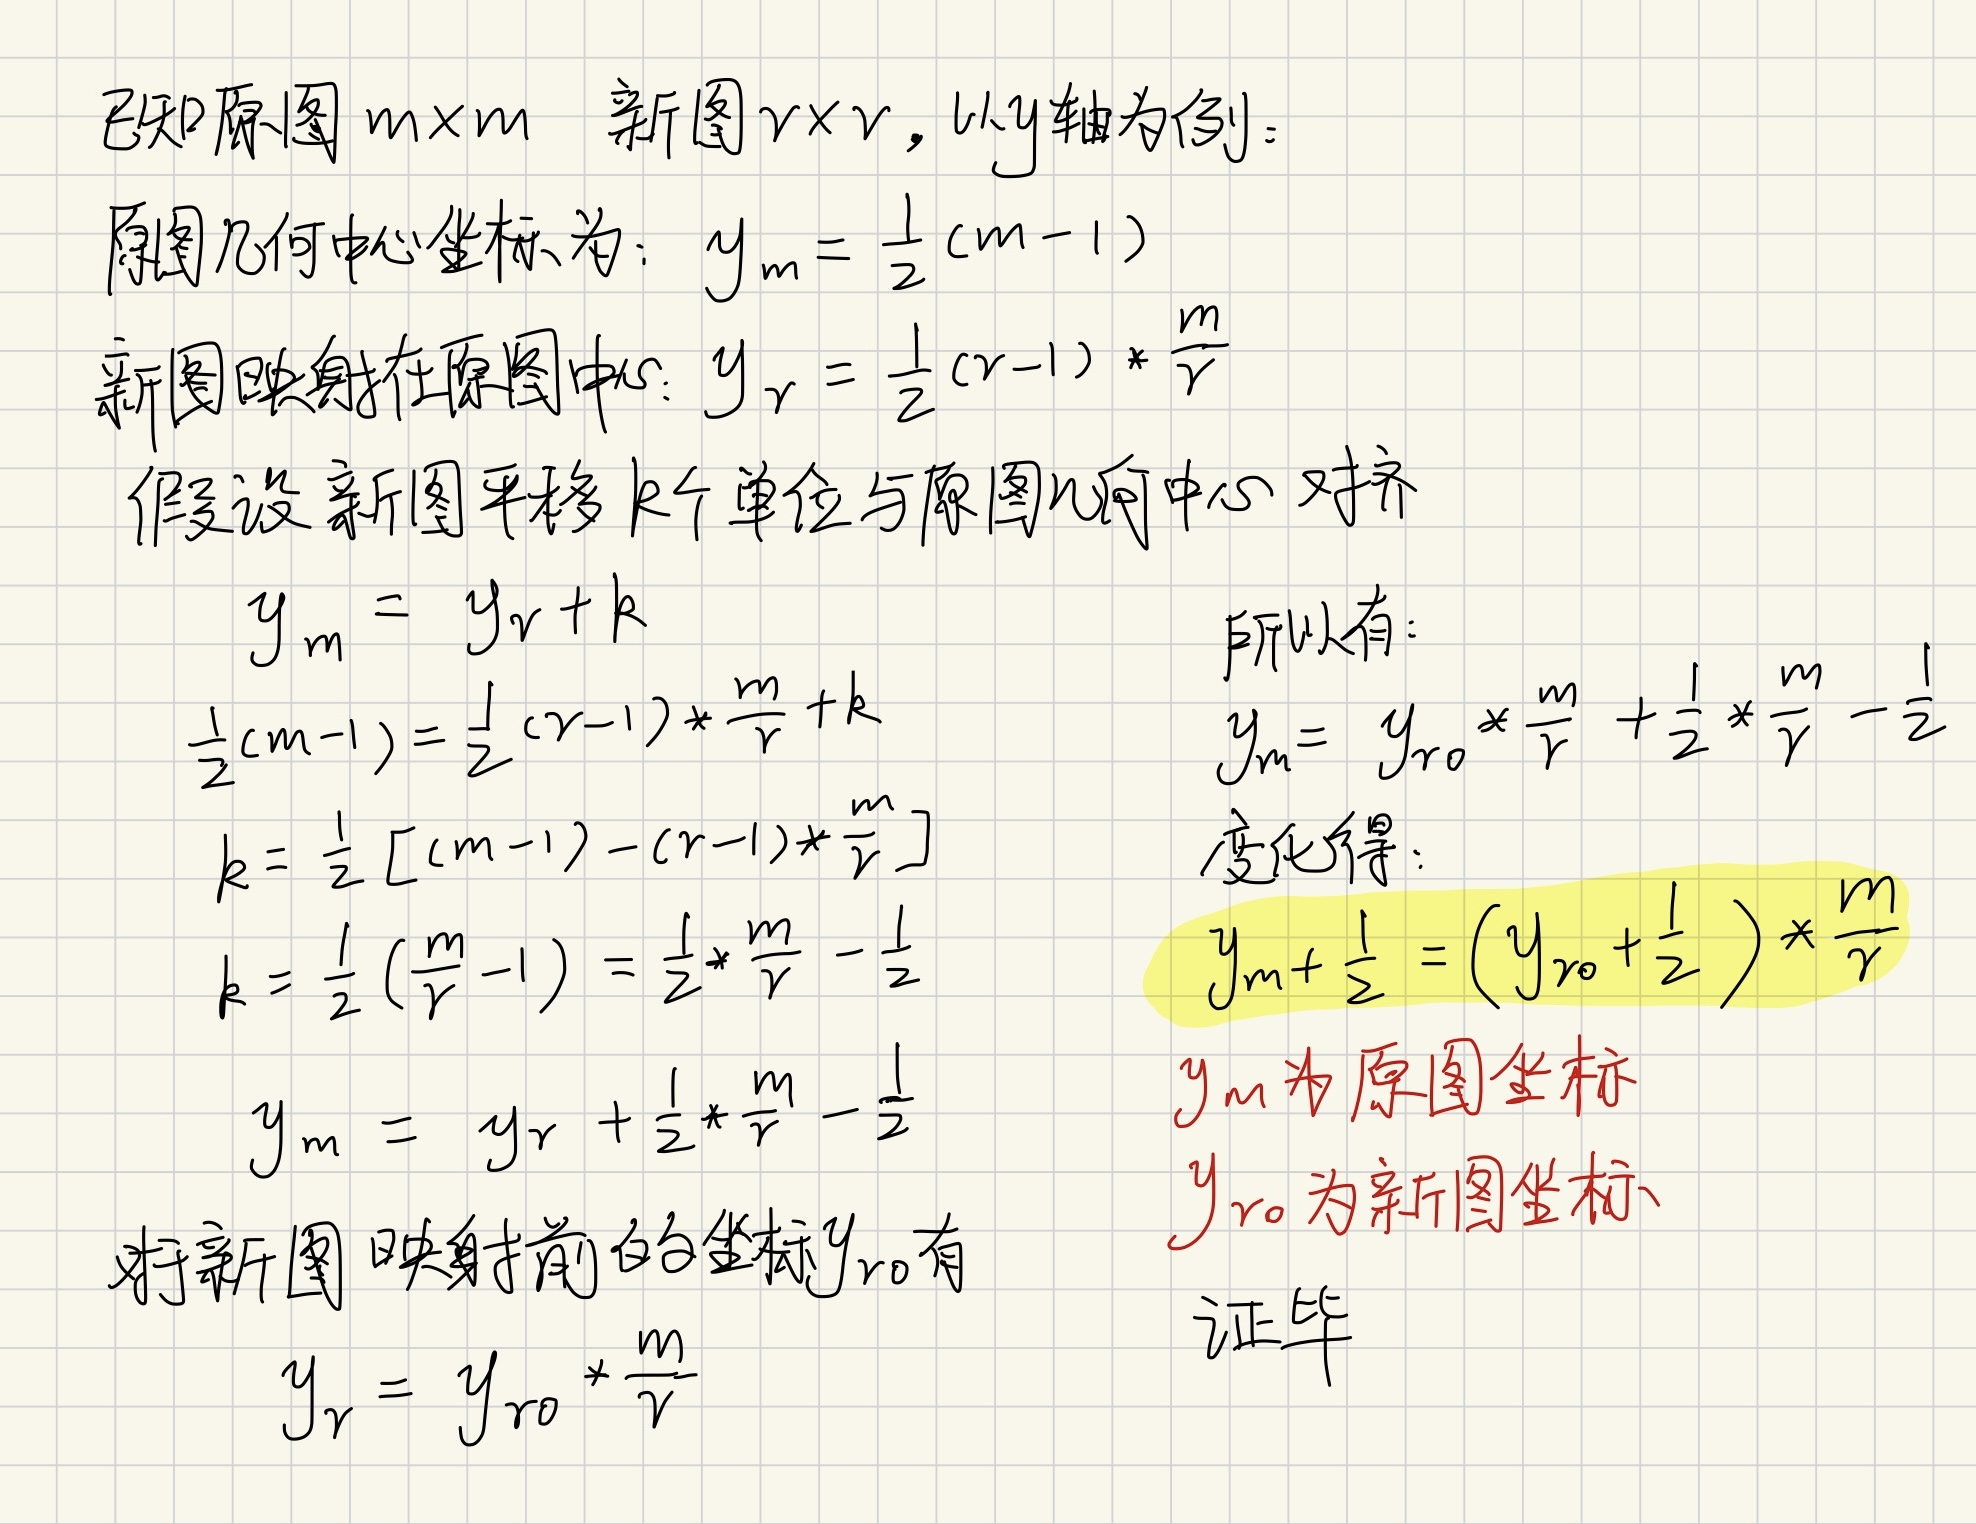 已知原图 m×m 新图 r×r，以y轴为例：
原图几何中心坐标为： y_m = 1/2 (m-1)
新图映射在原图中心： y_r = 1/2 (r-1) * m/r
假设新图平移k个单位与原图几何中心对齐
y_m = y_r + k
1/2 (m-1) = 1/2 (r-1) * m/r + k
k = 1/2 [(m-1) - (r-1) * m/r]
k = 1/2 (m/r - 1) = 1/2 * m/r - 1/2
y_m = y_r + 1/2 * m/r - 1/2
对于新图映射前的坐标y_r0有
y_r = y_r0 * m/r
所以有：
y_m = y_r0 * m/r + 1/2 * m/r - 1/2
变化得：
y_m + 1/2 = (y_r0 + 1/2) * m/r
y_m为原图坐标
y_r0为新图坐标
证毕